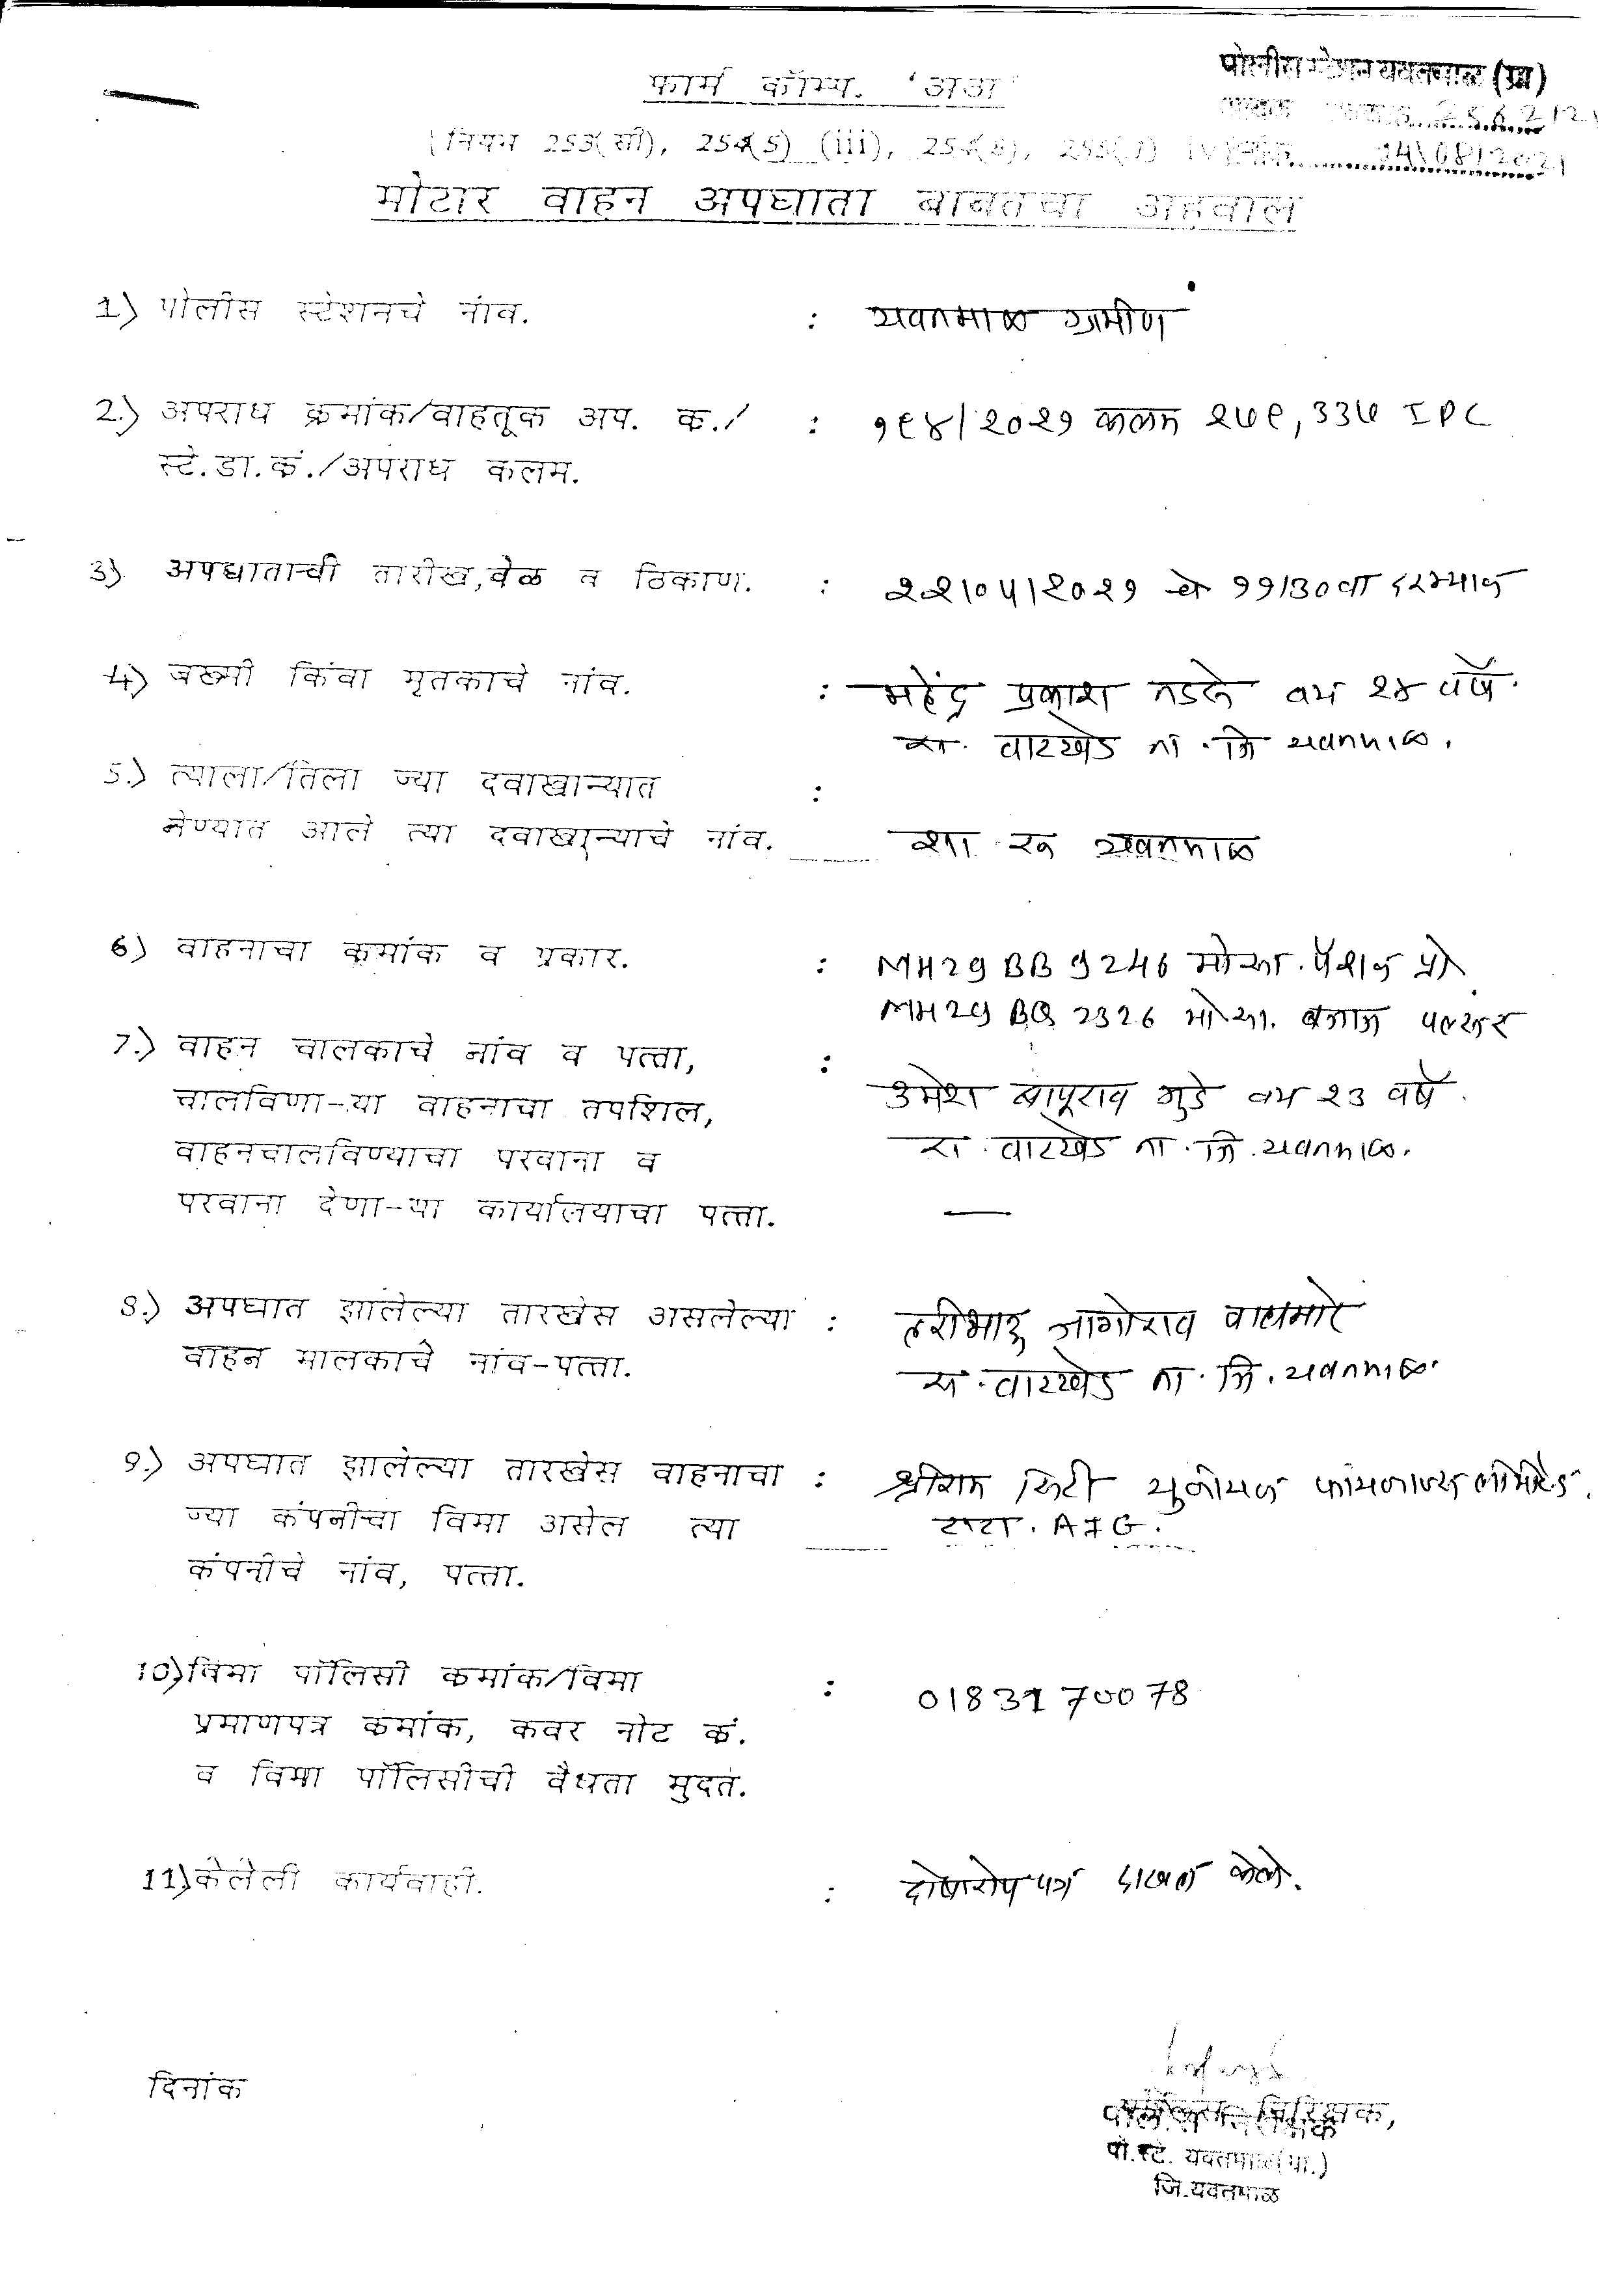 पोलीस स्टेशन यवतमाळ (ग्रा)
फार्म कॉम्प. 'अअ'
2562/21
(नियम 253(सी), 254(5) (iii), 254(8), 255(1) iv)
14/08/2021
मोटार वाहन अपघाता बाबतचा अहवाल
1) पोलीस स्टेशनचे नांव. : यवतमाळ ग्रामीण
2.) अपराध क्रमांक/वाहतूक अप. क्र./ : १९४/२०२१ कलम २७९, ३३७ IPC
स्टे.डा.कं./अपराध कलम.
3) अपघाताची तारीख,वेळ व ठिकाण. : २२/०५/२०२१ चे ११/३० वा दरम्यान
4) जख्मी किंवा मृतकाचे नांव. : महेंद्र प्रकाश वय २४ वर्षे.
रा. वारखेड ता. जि यवतमाळ.
5.) त्याला/तिला ज्या दवाखान्यात :
नेण्यात आले त्या दवाखान्याचे नांव. शा. रु यवतमाळ
6) वाहनाचा क्रमांक व प्रकार. : MH29 BB 9246 मो.सा. पॅशन प्रो
MH29 BQ 2326 मो.सा. बजाज पल्सर
7.) वाहन चालकाचे नांव व पत्ता, :
चालविणा-या वाहनाचा तपशिल, उमेश बापूराव गुडे वय २३ वर्षे.
वाहनचालविण्याचा परवाना व रा. वारखेड ता. जि. यवतमाळ.
परवाना देणा-या कार्यालयाचा पत्ता. —
8.) अपघात झालेल्या तारखेस असलेल्या : हरीभाऊ जागोराव वाघमारे
वाहन मालकाचे नांव-पत्ता. रा. वारखेड ता. जि. यवतमाळ.
9.) अपघात झालेल्या तारखेस वाहनाचा : श्रीराम सिटी युनीयन फायनान्स लीमीटेड.
ज्या कंपनीचा विमा असेल त्या टाटा. AIG.
कंपनीचे नांव, पत्ता.
10) विमा पॉलिसी क्रमांक/विमा : 0183170078
प्रमाणपत्र क्रमांक, कवर नोट कं.
व विमा पॉलिसीची वैधता मुदत.
11) केलेली कार्यवाही. : दोषारोप पत्र दाखल केले.
दिनांक
पोलीस निरिक्षक,
पो.स्टे. यवतमाळ(ग्रा.)
जि.यवतमाळ